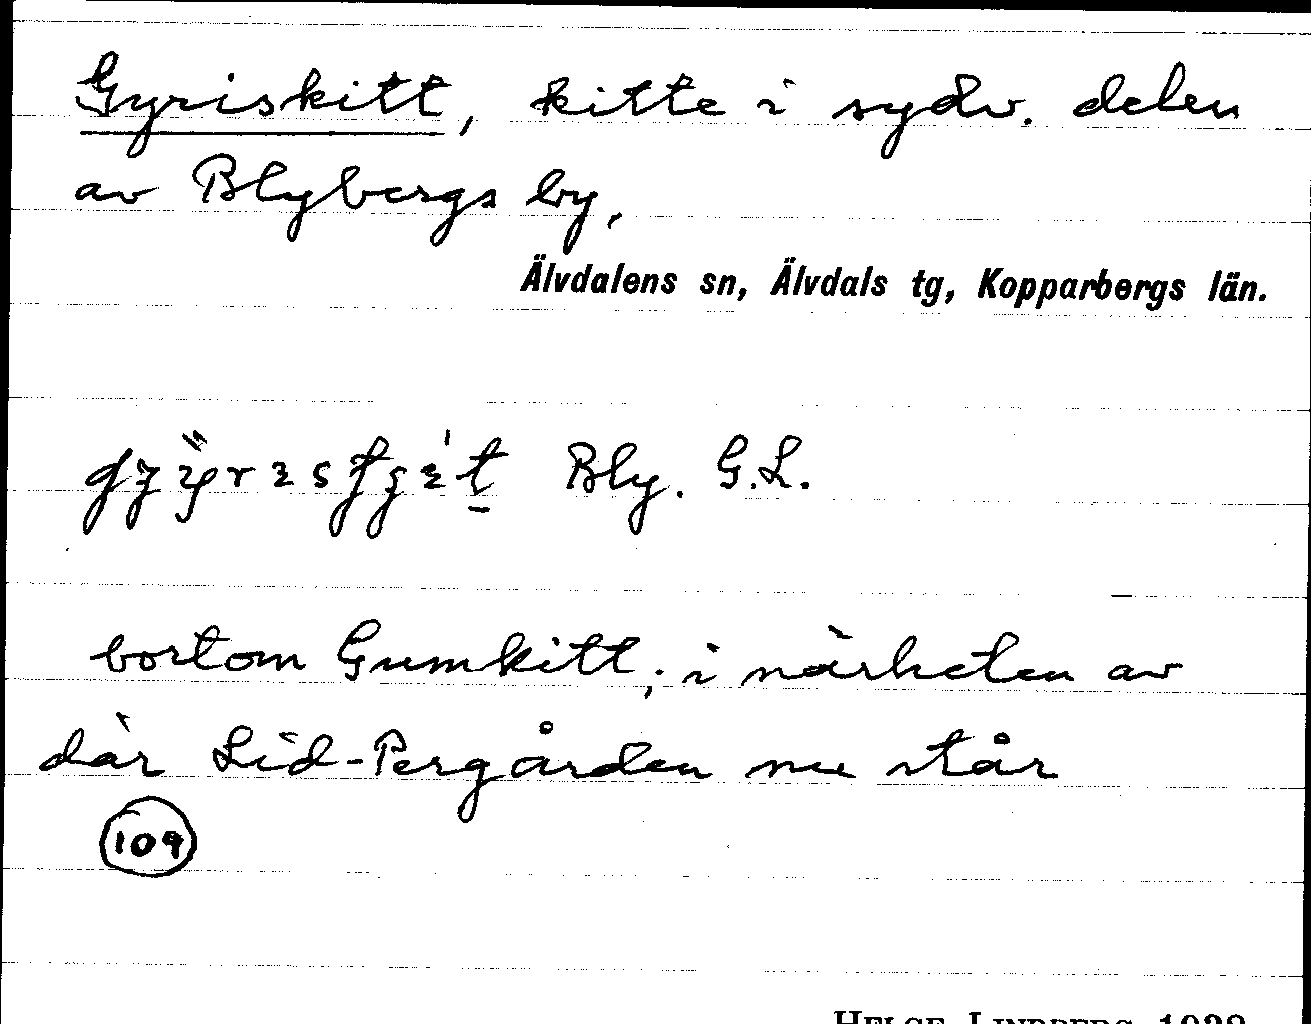 Gyriskitt, kitte i sydv. delen
av Blybergs by,
Älvdalens sn, Älvdals tg, Kopparbergs län.
Bly. G.L.
bortom Gumkitt; i närheten av
där Lid-Pergården nu står
109
HELGE LINDBERG 1938